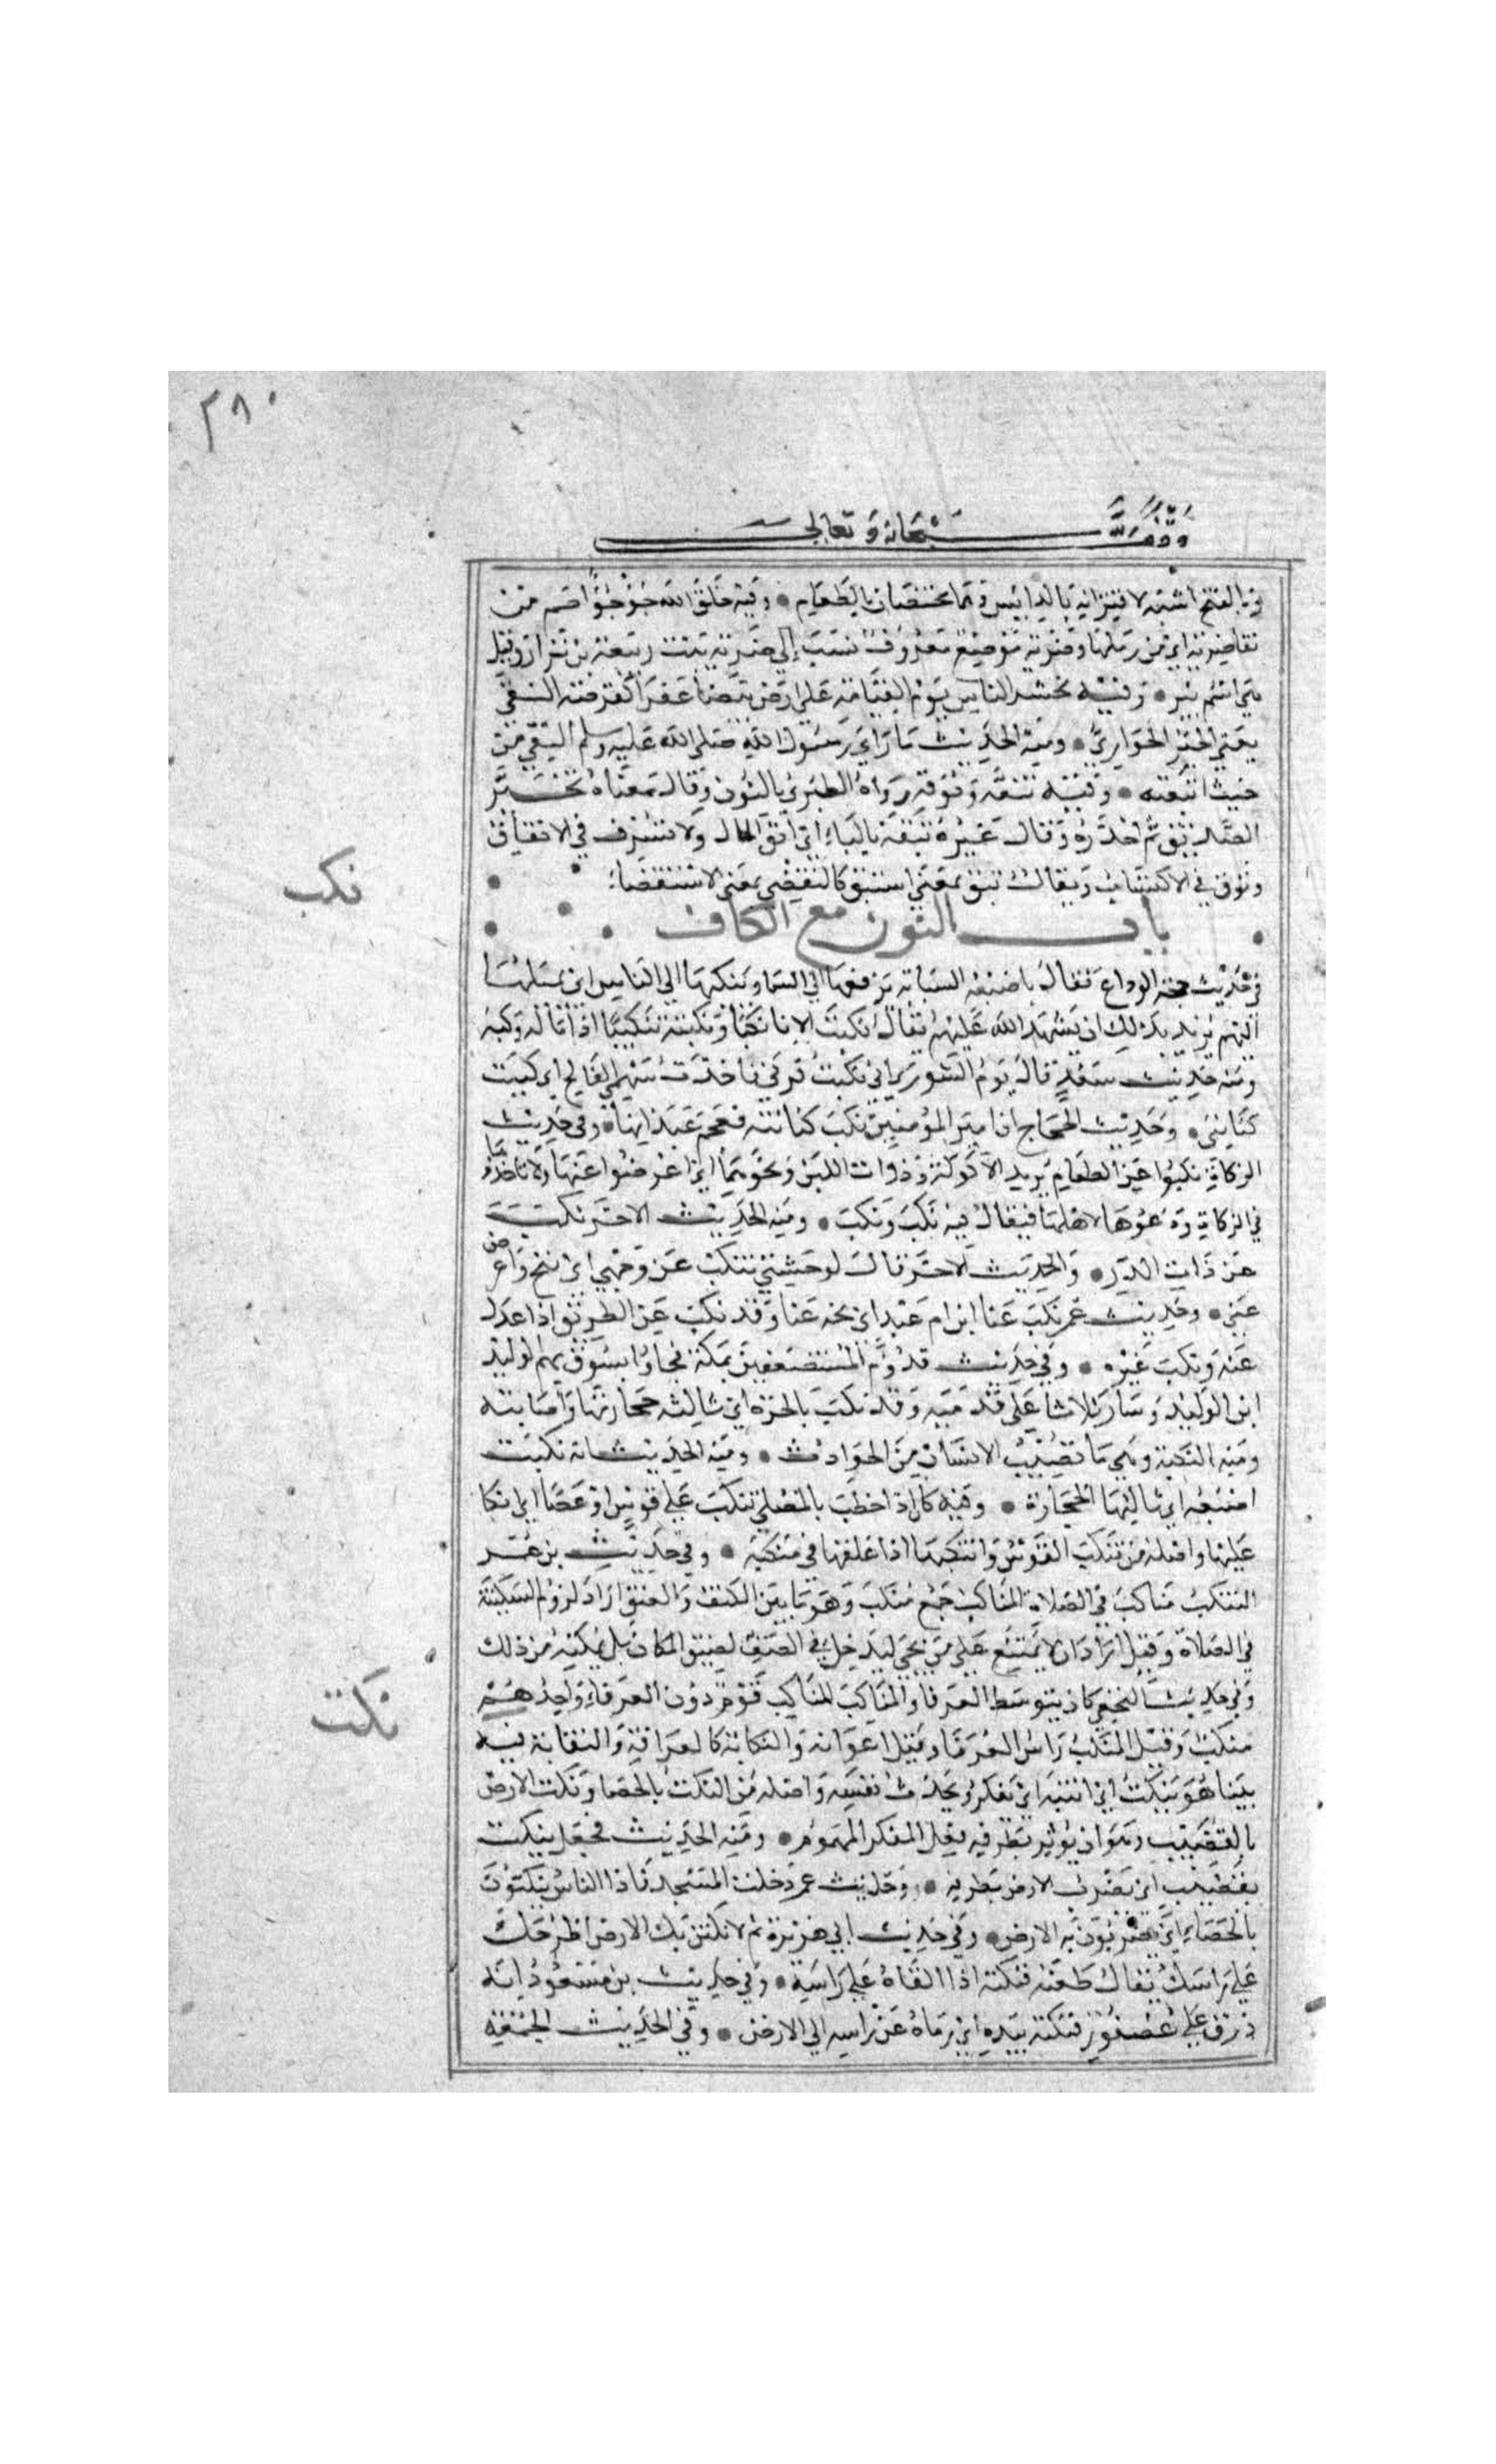 ٣٨٠
وقف لله سبحانه وتعالى
والفتح اشبه لاقترانه بالدايس وهما مختصان بالطعام • وفيه خلق الله جؤجؤ آدم من
نقا ضرية اي من رملها وضرية موضع معروف نسب إلى ضرية بنت ربيعة بن نزار وقيل
هي اسم بير • وفيه يحشر الناس يوم القيامة على ارض بيضا عفرا كقرصة النقي
يعني الخبز الحواري • ومنه الحديث ما رأى رسول الله صلى الله عليه وسلم النقي من
حيث ابتعثه • وفيه تنقه وتوقه رواه الطبري بالنون وقال معناه تخير
الصديق ثم احذره وقال غيره تبقه بالباء اي ابق المال ولا تسرف في الانفاق
وتوق في الاكتساب ويقال تبق بمعنى استبق كالتقضي بمعنى الاستقضاء •
باب النون مع الكاف
نكب
في حديث حجة الوداع فقال باصبعه السبابة يرفعها الى السما وينكبها الى الناس اي يميلها
اليهم يريد بذلك ان يشهد الله عليهم يقال نكبت الانا نكبا ونكبته تنكيبا اذا اماله وكبه
ومنه حديث سعد قال يوم الشورى اني نكبت قرني فاخذت سهمي الفالج اي كببت
كنانتي • وحديث الحجاج ان امير المؤمنين نكب كنانته فعجم عيدانها • وفي حديث
الزكاة نكبوا عن الطعام يريد الاكولة وذوات اللبن ونحوهما اي اعرضوا عنها ولا تاخذوها
في الزكاة ودعوها لاهلها فيقال فيه نكب ونكب • ومنه الحديث الاخر نكب
عن ذات الدر • والحديث الاخر قال لوحشي تنكب عن وجهي اي تنح واعرض
عني • وحديث عمر نكب عنا ابن ام عبد اي نحه عنا وقد نكب عن الطريق اذا عدل
عنه ونكب غيره • وفي حديث قدوم المستضعفين بمكة فجاؤا يسوق بهم الوليد
ابن الوليد وسار ثلاثا على قدميه وقد نكب بالحرة اي نالته حجارتها واصابته
ومنه النكبة وهي ما تصيب الانسان من الحوادث • ومنه الحديث انه نكبت
اصبعه اي نالتها الحجارة • وفيه كان اذا خطب بالمصلى تنكب على قوس او عصا اي اتكا
عليها واصله من تنكب القوس وانتكبها اذا علقها في منكبه • وفي حديث بن عمر
الينكم مناكب في الصلاة المناكب جمع منكب وهو ما بين الكتف والعنق اراد لزوم السكينة
في الصلاة وقيل اراد ان لا يمتنع على من يجي ليدخل في الصف لضيق المكان بل يمكنه من ذلك
وفي حديث النخعي كان يتوسط العرفا والمناكب المناكب قوم دون العرفاء واحدهم
منكب وقيل المنكب راس العرفا وقيل اعوانه والنكابة كالعرافة والنقابة فيه
نكت
بينا هو ينكت اذ انتبه اي يفكر ويحدث نفسه واصله من النكت بالحصا ونكت الارض
بالقضيب وهو ان يؤثر بطرفه فعل المفكر المهموم • ومنه الحديث فجعل ينكت
بقضيب اي يضرب الارض بطرفه • وحديث عمر دخلت المسجد فاذا الناس ينكتون
بالحصاء اي يضربون به الارض • وفي حديث ابي هريرة ثم لانكتن بك الارض اطرحك
على راسك يقال طعنه فنكته اذا القاه على راسه • وفي حديث بن مسعود انه
ذرق على عصفور فنكته بيده اي رماه عن راسه الى الارض • وفي الحديث الجمعة